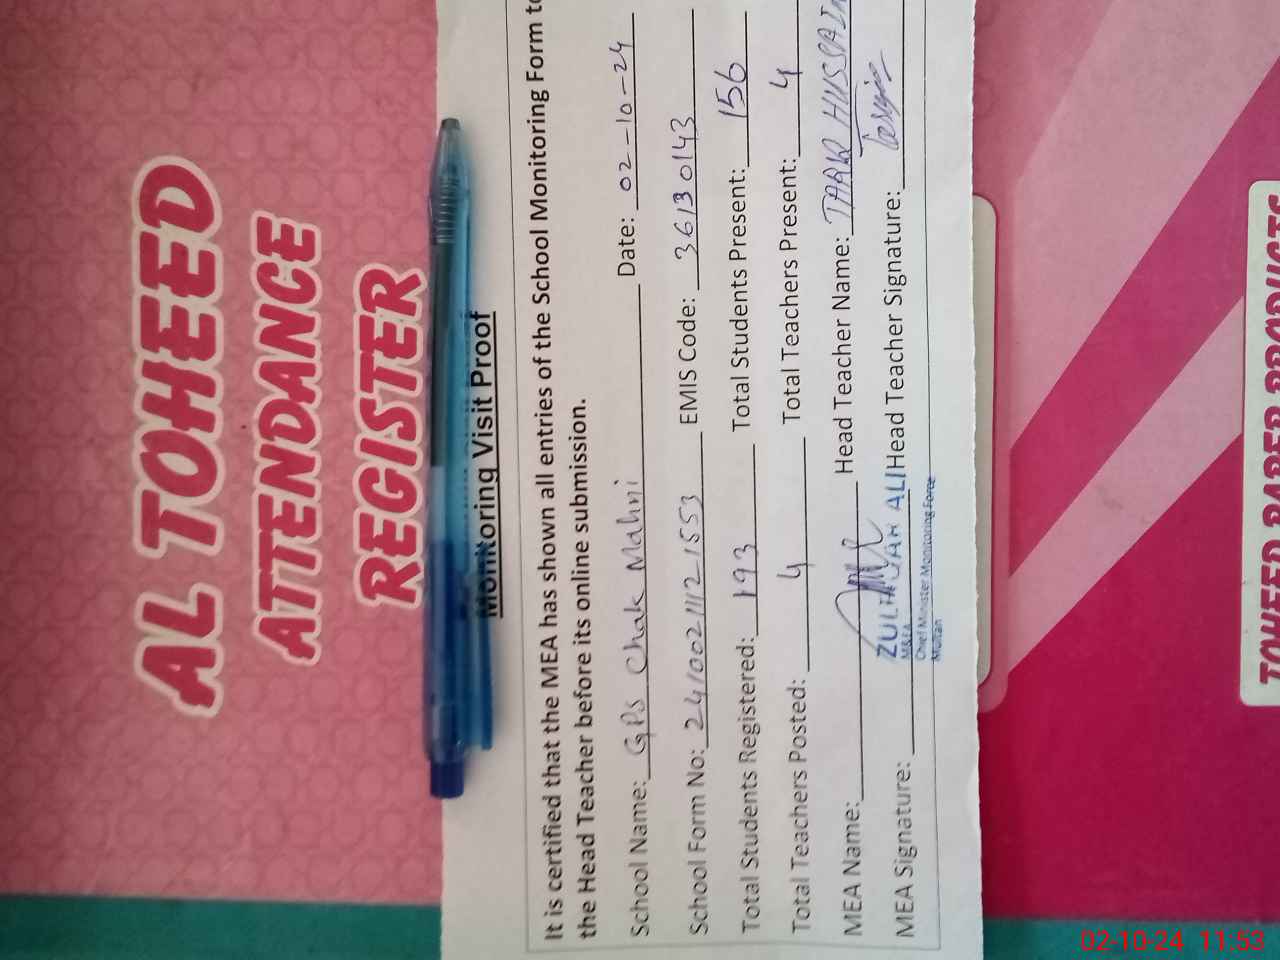 AL TOHEED
ATTENDANCE
REGISTER
Monitoring Visit Proof
It is certified that the MEA has shown all entries of the School Monitoring Form to
the Head Teacher before its online submission.
School Name: GPS Chak Mahni Date: 02-10-24
School Form No: 24100211121553 EMIS Code: 36130143
Total Students Registered: 193 Total Students Present: 156
Total Teachers Posted: 4 Total Teachers Present: 4
MEA Name: Head Teacher Name: TARIQ HUSSAIN
MEA Signature: Head Teacher Signature:
ZULFIQAR ALI
M&EA
Chief Minister Monitoring Force
Multan
TOHEED PAPER PRODUCTS
02-10-24 11:53